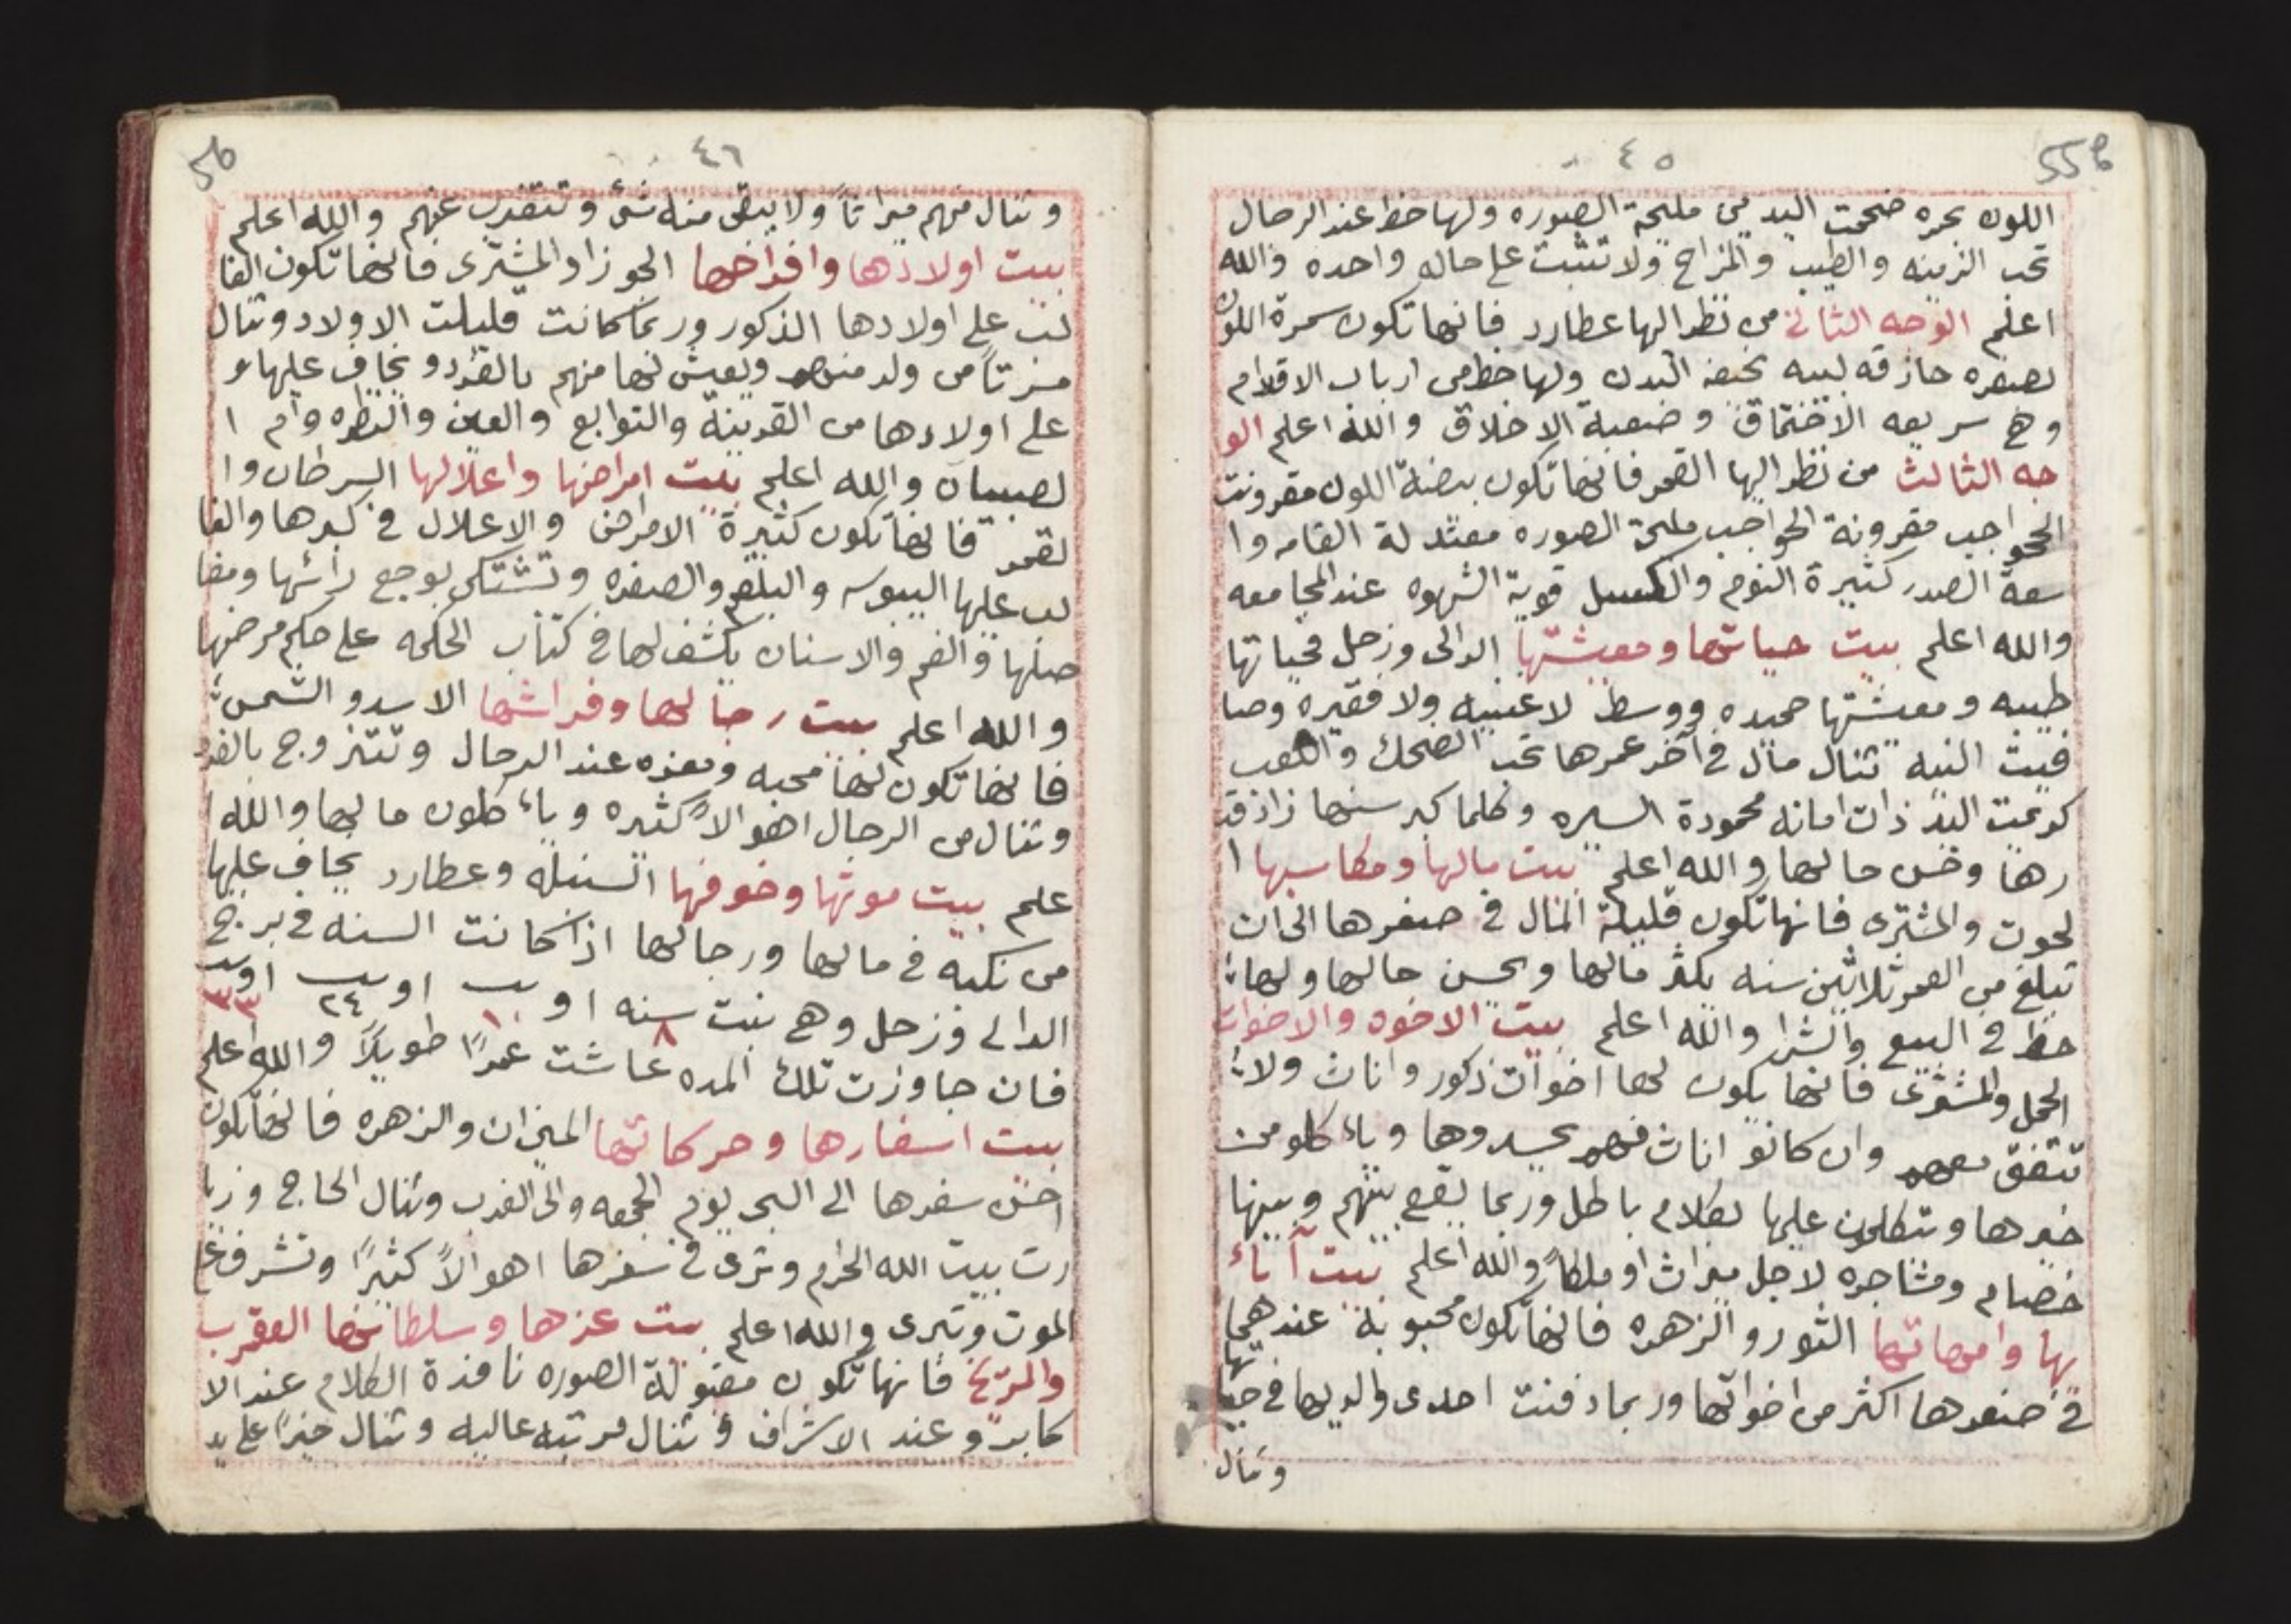 55b
٤٥
اللون بحمره ضخمت اليدين مليحة الصوره ولها حظ عند الرجال
تحب الزينه والطيب والمزاح ولا تثبت على حاله واحده والله
اعلم الوجه الثاني من نظر اليها عطارد فانها تكون سمرة اللون
بصفره حاذقه لبيبه نحيفة البدن ولها حظ من ارباب الاقلام
وهي سريعه الاختماق وضعية الاخلاق والله اعلم الو
جه الثالث من نظر اليها القمر فانها تكون بيضة اللون مقرونت
الحجو اجب مقرونة الحواجب مليحة الصوره معتدلة القامه وا
سعة الصدر كثيرة النوم والكسل قوية الشهوه عند المجامعه
والله اعلم بيت حياتها ومعيشتها الدالى وزحل فحياتها
طيبه ومعيشتها حميده ووسط لا غنيه ولا فقيره وصا
فيت النيه تنال مال في آخر عمرها تحب الضحك واللعب
كريمت اليد ذات امانه محمودة السيره وكلما كبر سنها زاد قد
رها وحسن حالها والله اعلم بيت مالها ومكاسبها ا
لحوت والمشترى فانها تكون قليلة المال في صغرها الى ان
تبلغ من العمر ثلاثين سنه يكثر مالها ويحسن حالها ولها
حظ في البيع والشرا والله اعلم بيت الاخوه والاخوات
الحمل والمشترى فانها يكون لها اخوات ذكور واناث ولا
تتفق معهم وان كانو اناث فهم يحسدوها وياء كلو من
خيرها وتتكلمون عليها بكلام باطل وربما يقع بينهم وبينها
خصام ومشاجره لاجل ميراث او ملكاً والله اعلم بيت آباء
بها وامهاتها الثور والزهره فانها تكون محبوبة عندهما
في صغرها اكثر من اخواتها وربما دفنت احدى والديها في حيا
تها
وتنال
56
٤٦
وتنال منهم ميراثاً ولا يبقى منه شئ وتتغرب عنهم والله اعلم
بيت اولادها وافراخها الجوزا والمشترى فانها تكون الغا
لب على اولادها الذكور وربما كانت قليلت الاولاد وتنال
مسرتاً من ولد منهم ويعيش لها منهم بالفرد ويخاف عليها و
على اولادها من القرينة والتوابع والعين والنظره وام ا
لصبيان والله اعلم بيت امراضها واعلالها السرطان وا
لقمر فانها تكون كثيرة الامراض والاعلال في كبرها والغا
لب عليها اليبوسه والبلغم والصفره وتشتكى بوجع رائسها ومفا
صلها والفم والاسنان يكشف لها في كتاب الحكمه على حكم مرضها
والله اعلم بيت رجالها وفراشها الاسد والشمس
فانها تكون لها محبه ومعزه عند الرجال وتتزوج بالفرد
وتنال من الرجال اهوالاً كثيره وياء كلون مالها والله ا
علم بيت موتها وخوفها السنبله وعطارد يخاف عليها
من نكبه في مالها ورجالها اذا كانت السنه في برج
الدالى وزحل وهي بنت ٨ سنه او بنت ١٠ او بنت ٢٤ او بنت ٣٣
فان جاوزت تلك المده عاشت عمراً طويلاً والله اعلم
بيت اسفارها وحركاتها الميزان والزهره فانها تكون
احسن سفرها الى البحر يوم الجمعه والى الغرب وتنال الحاج وزيا
رت بيت الله الحرام وترى في سفرها اهوالاً كثيراً وتشرف على
الموت وتبرى والله اعلم بيت عزها وسلطانها العقرب
والمريخ فانها تكون مقبولة الصوره نافذة الكلام عند الا
كابر وعند الاشراف وتنال مرتبه عاليه وتنال خيراً على يد